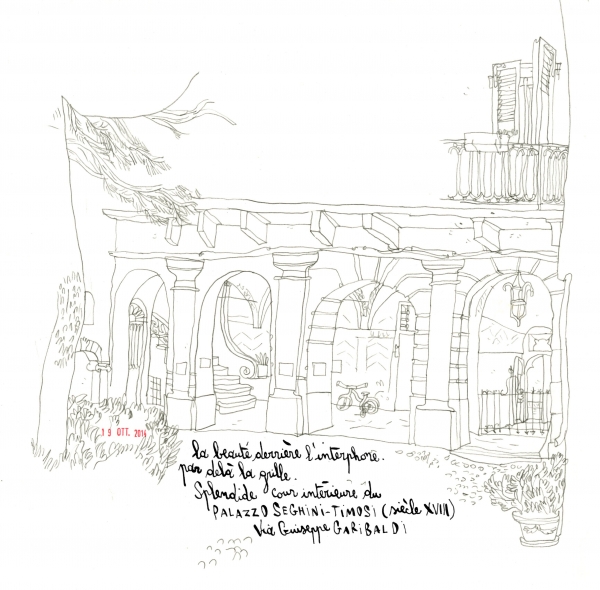 19 OTT. 2014
la beauté derrière l'interphone.
par delà la grille.
Splendide cour intérieure du
PALAZZO SEGHINI-TIMOSI (siècle XVIII)
Via Guiseppe GARIBALDI